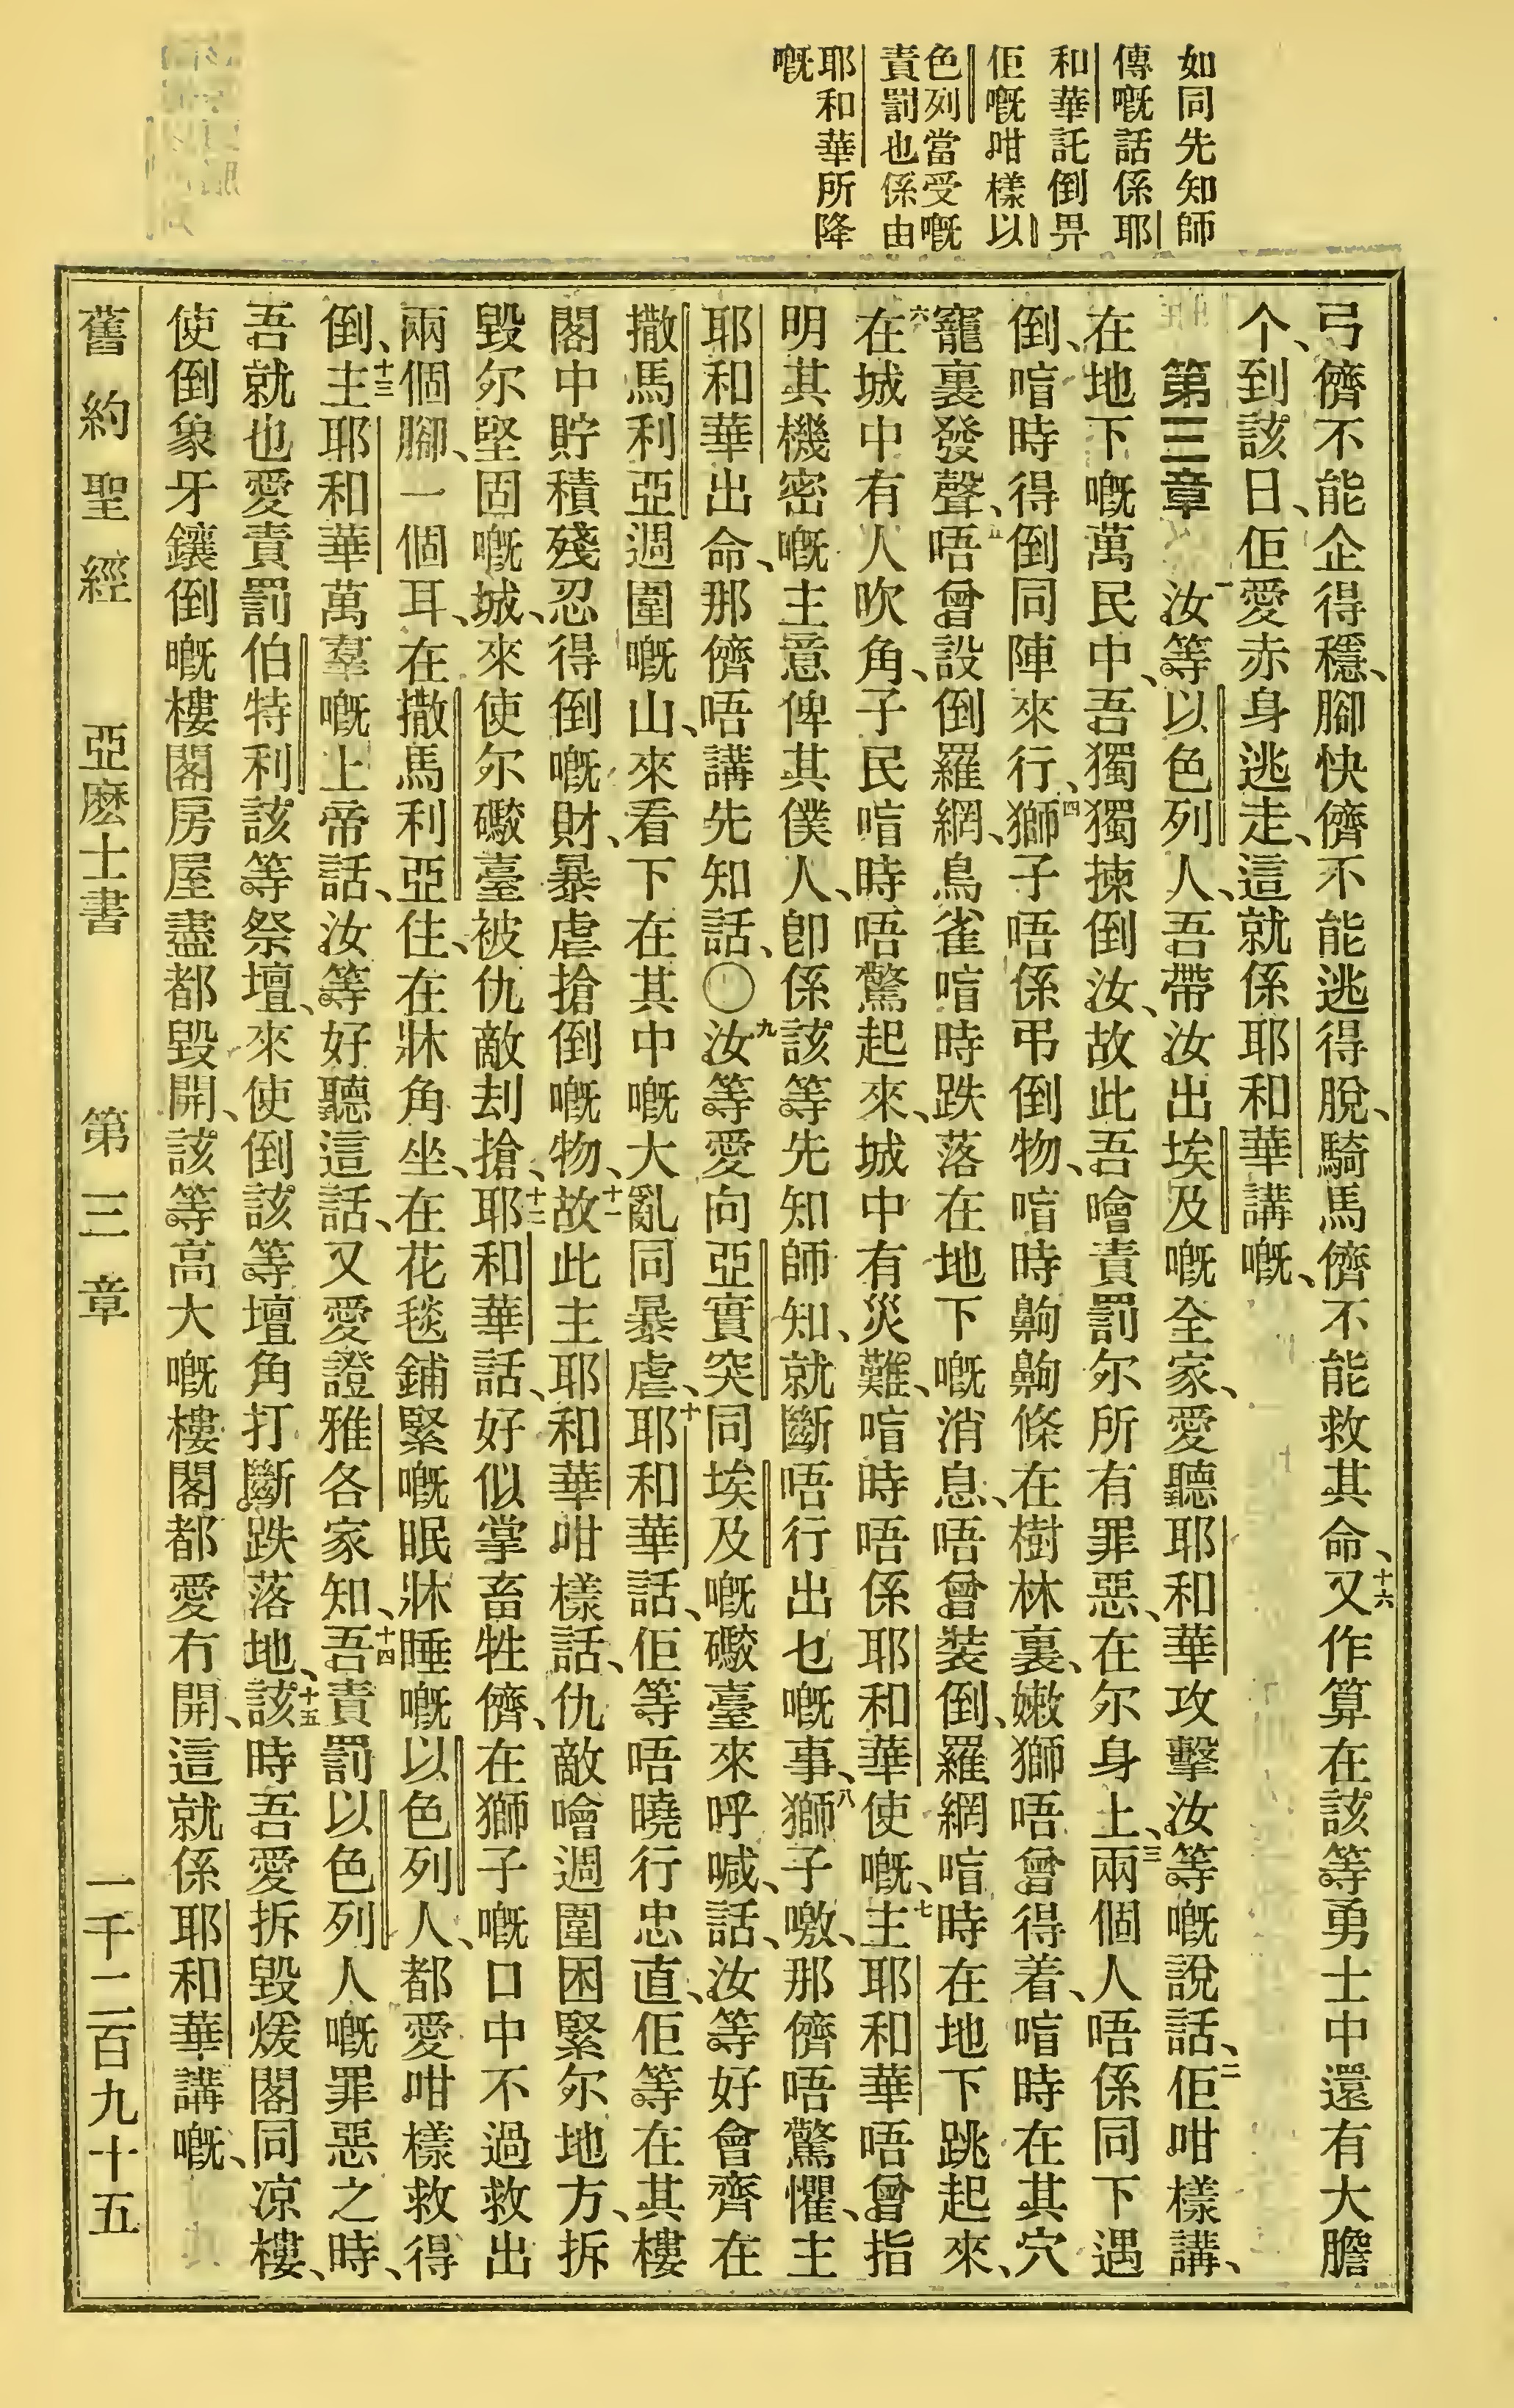 如同先知師
傳嘅話係耶
和華託倒畀
佢嘅咁樣以
色列當受嘅
責罰也係由
耶和華所降
嘅
弓儕不能企得穩、腳快儕不能逃得脫、騎馬儕不能救其命、十六又作算在該等勇士中還有大膽
个、到該日、佢愛赤身逃走、這就係耶和華講嘅、
第三章 一汝等以色列人、吾帶汝出埃及嘅全家、愛聽耶和華攻擊汝等嘅說話、二佢咁樣講、
在地下嘅萬民中、吾獨獨揀倒汝、故此吾噲責罰尔所有罪惡、在尔身上、三兩個人唔係同下遇
倒、喑時得倒同陣來行、四獅子唔係弔倒物、喑時齁齁條在樹林裏、嫩獅唔曾得着、喑時在其穴
竉裏發聲、五唔曾設倒羅網、鳥雀喑時跌落在地下嘅消息、唔曾裝倒、羅網喑時在地下跳起來、
六在城中有人吹角、子民喑時唔驚起來、城中有災難、喑時唔係耶和華使嘅、七主耶和華唔曾指
明其機密嘅主意俾其僕人、卽係該等先知師知、就斷唔行出乜嘅事、八獅子噭、那儕唔驚懼、主
耶和華出命、那儕唔講先知話、〇九汝等愛向亞實突同埃及嘅礮臺來呼喊、話、汝等好會齊在
撒馬利亞週圍嘅山、來看下在其中嘅大亂同暴虐、十耶和華話、佢等唔曉行忠直、佢等在其樓
閣中貯積殘忍得倒嘅財、暴虐搶倒嘅物、十一故此主耶和華咁樣話、仇敵噲週圍困緊尔地方、拆
毀尔堅固嘅城、來使尔礮臺被仇敵刦搶、十二耶和華話、好似掌畜牲儕、在獅子嘅口中不過救出
兩個腳、一個耳、在撒馬利亞住、在牀角坐、在花毯鋪緊嘅眠牀睡嘅以色列人、都愛咁樣救得
倒、十三主耶和華萬羣嘅上帝話、汝等好聽這話、又愛證雅各家知、十四吾責罰以色列人嘅罪惡之時、
吾就也愛責罰伯特利該等祭壇、來使倒該等壇角打斷跌落地、十五該時吾愛拆毀煖閣同凉樓、
使倒象牙鑲倒嘅樓閣房屋盡都毀開、該等高大嘅樓閣都愛冇開、這就係耶和華講嘅、
舊約聖經 亞麽士書 第三章 一千二百九十五